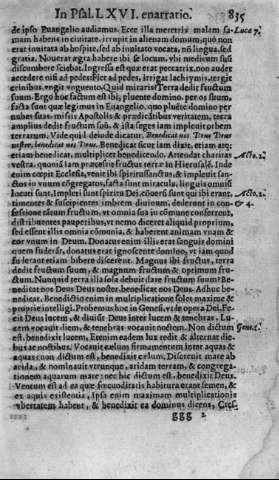 In Psal. LXVI. enarratio. 835
de ipso Euangelio audiamus. Ecce illa meretrix malam fa- Lucæ 7.
mam habens in ciuitate, irrupit in alienam domum, quò non
erat inuitata ab hospite, sed ab inuitato vocata, nō lingua, sed
gratia. Nouerat ægra habere ibi se locum, vbi medicum suũ
discumbere sciebat. Ingressa est quæ erat peccatrix, non audet
accedere nisi ad pedes: Flet ad pedes, irrigat lachrymis, tergit
crinibus, vngit vnguento. Quid miraris? Terra dedit fructum
suum. Ergo hoc factum est ibi, pluente domino per os suum,
facta sunt quæ legimus in Euangelio, quo pluēte domino per
nubes suas, missis Apostolis & prædicātibus veritatem, terra
amplius dedit fructum suũ, & ista seges iam impleuit orbem
terrarum. Vide quid deinde dicatur. Benedicat nos Deus Deus
noster, benedicat nos Deus. Benedicat sicut iam dixit, etiam atq;
etiam benedicat, multiplicet benedicendo. Attendat charitas Acto. 2.
vestra, quomā iam præcessit fructus terræ in Hierusalē. Inde
enim cœpit Ecclesia, venit ibi spiritussanctus, & impleuit san-
ctos in vnum cōgregatos, facta sunt miracula, linguis omniũ
locuti sunt, Impleti sunt spiritu Dei, cōuersi sunt qui ibi erant. Acto. 2.
timentes & suscipientes imbrem diuinum, dederunt in con- & 4.
fessione tacum fructum, vt omnia sua in cōmune conferrent,
distribuentes pauperibus, vt nemo diceret aliquid proprium,
sed essent illis omnia cōmunia, & haberent animam vnam &
cor vnum in Deum. Donatus enim illis erat sanguis domini
quem fuderāt, donatus erat ignoscente domino, vt iam quod
fuderant etiam bibere discerent. Magnus ibi fructus, terra
dedit fructum suum, & magnum fructum & optimum fru-
ctum. Nunquid terra illa sola debuit dare fructum suum? Be-
nedicat nos Deus Deus noster, benedicat nos Deus. Adhuc be-
nedicat. Benedictio enim in multiplicatione solet maxime &
proprie intelligi. Probemus hoc in Genesi, vide opera Dei. Fe-
cit Deus lucem, & diuisit Deus inter lucem & tenebras. Lu-
cem vocauit diem, & tenebras vocauit noctem. Non dictum Gene. 1.
est, benedixit lucem, Etenim eadem lux redit & alternat die-
bus ac noctibus. Vocauit cælum firmamentum inter aquas &
aquas: non dictum est, benedixit cælum, Discreuit mare ab
arida, & nominauit vtrunque, aridam terram, & congrega-
tionem aquarum mare: nec hic dictum est, benedixit Deus.
Ventum est ad ea quæ fœcunditatis habitura erant semen, &
ex aquis existentia, Ipsa enim maximam multiplicationis
vbertatem habent, & benedixit ea dominus dicens, Cres-
ggg 2